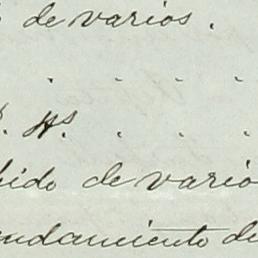 de varios.
. . . .
Hs. . . .
bido de vario
endamiento de